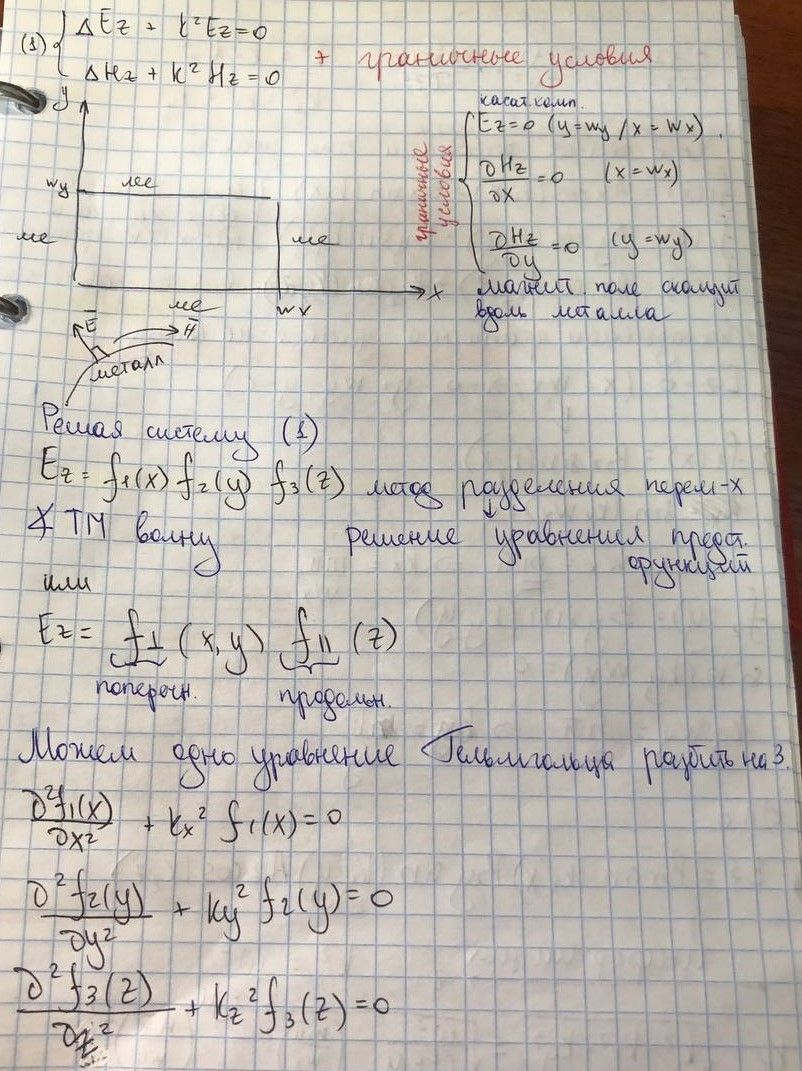 (1) { ΔEz + k²Ez=0
ΔHz + k² Hz = 0
+ граничные условия
y
wy
ме
ме
ме
ме
wx
x
граничные условия
касат. комп.
Ez=0 (y=wy / x=wx).
∂Hz/∂x =0 (x=wx)
∂Hz/∂y =0 (y=wy)
магнит. поле скользит
вдоль металла
E̅
H̅
металл
Решая систему (1)
Ez = f1(x) f2(y) f3(z) метод разделения перем-х
∡ ТМ волну
решение уравнения предст.
функций
или
Ez = f⊥ (x,y) f∥ (z)
поперечн. продольн.
Можем одно уравнение Гельмгольца разбить на 3.
∂²f1(x)/∂x² + kx² f1(x)=0
∂²f2(y)/∂y² + ky² f2(y)=0
∂²f3(z)/∂z² + kz² f3(z)=0